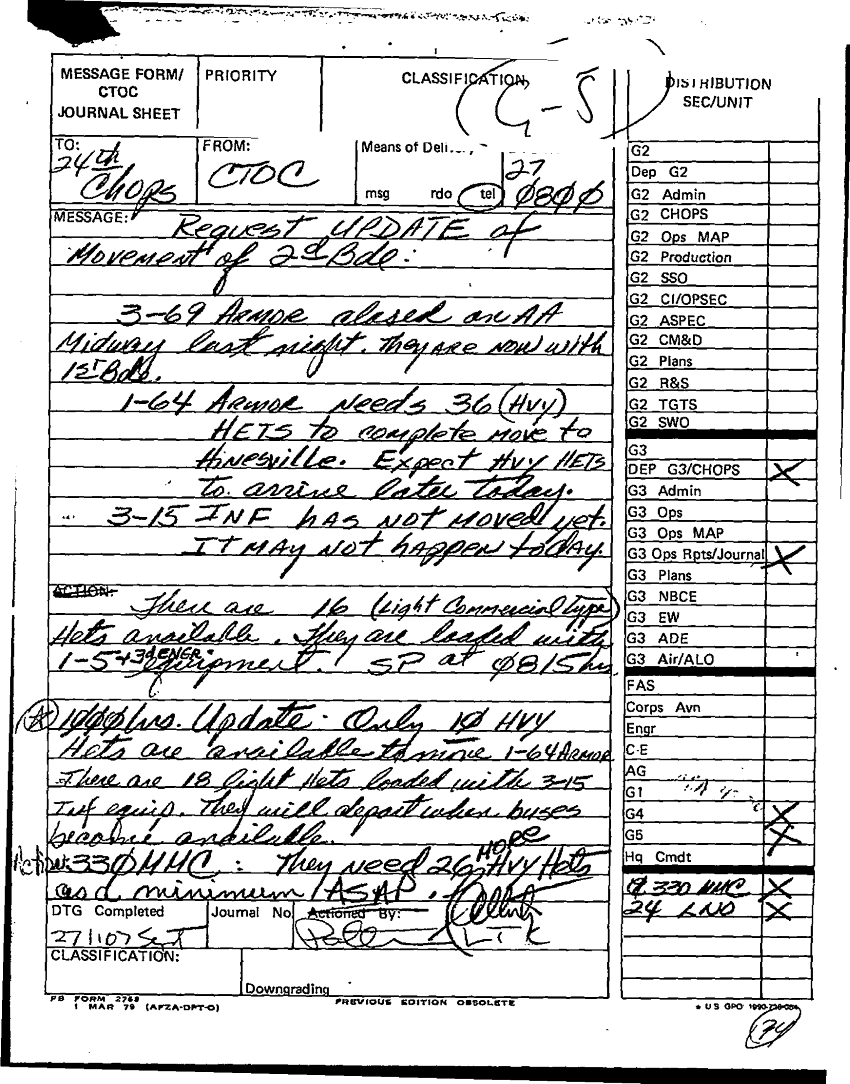 MESSAGE FORM/
CTOC
JOURNAL SHEET
PRIORITY
CLASSIFICATION
G-5
TO:
24th
Chops
FROM:
CTOC
Means of
msg rdo tel
27
0800
MESSAGE:
Request UPDATE of
Movement of 2d Bde:
3-69 ARMOR closed on AA
Midway last night. They ARE NOW with
1st Bde.
1-64 ARMOR Needs 36 (HVY)
HETS to complete move to
Hinesville. Expect HVY HETS
to arrive later today.
3-15 INF has not moved yet.
IT MAY NOT happen today.
ACTION:
There are 16 (Light Commercial Type)
Hets available. They are loaded with
1-5 + 3d ENGR equipment. SP at 0815 hrs
1000 hrs. Update: Only 10 HVY
Hets are available to move 1-64 ARMOR
There are 18 light Hets loaded with 3-15
Inf equip. They will depart when buses
become available.
330 MMC: They need 26 MORE HVY Hets
as a minimum ASAP.
DTG Completed
27/1107 Sept
Journal No.
Actioned By:
LTC
CLASSIFICATION:
Downgrading
FB FORM 2768
1 MAR 79 (AFZA-DPT-O)
PREVIOUS EDITION OBSOLETE
DISTRIBUTION
SEC/UNIT
G2
Dep G2
G2 Admin
G2 CHOPS
G2 Ops MAP
G2 Production
G2 SSO
G2 CI/OPSEC
G2 ASPEC
G2 CM&D
G2 Plans
G2 R&S
G2 TGTS
G2 SWO
G3
DEP G3/CHOPS X
G3 Admin
G3 Ops
G3 Ops MAP
G3 Ops Rpts/Journal X
G3 Plans
G3 NBCE
G3 EW
G3 ADE
G3 Air/ALO
FAS
Corps Avn
Engr
C-E
AG
G1
G4 X
G5 X
Hq Cmdt
330 MMC X
24 LNO X
US GPO